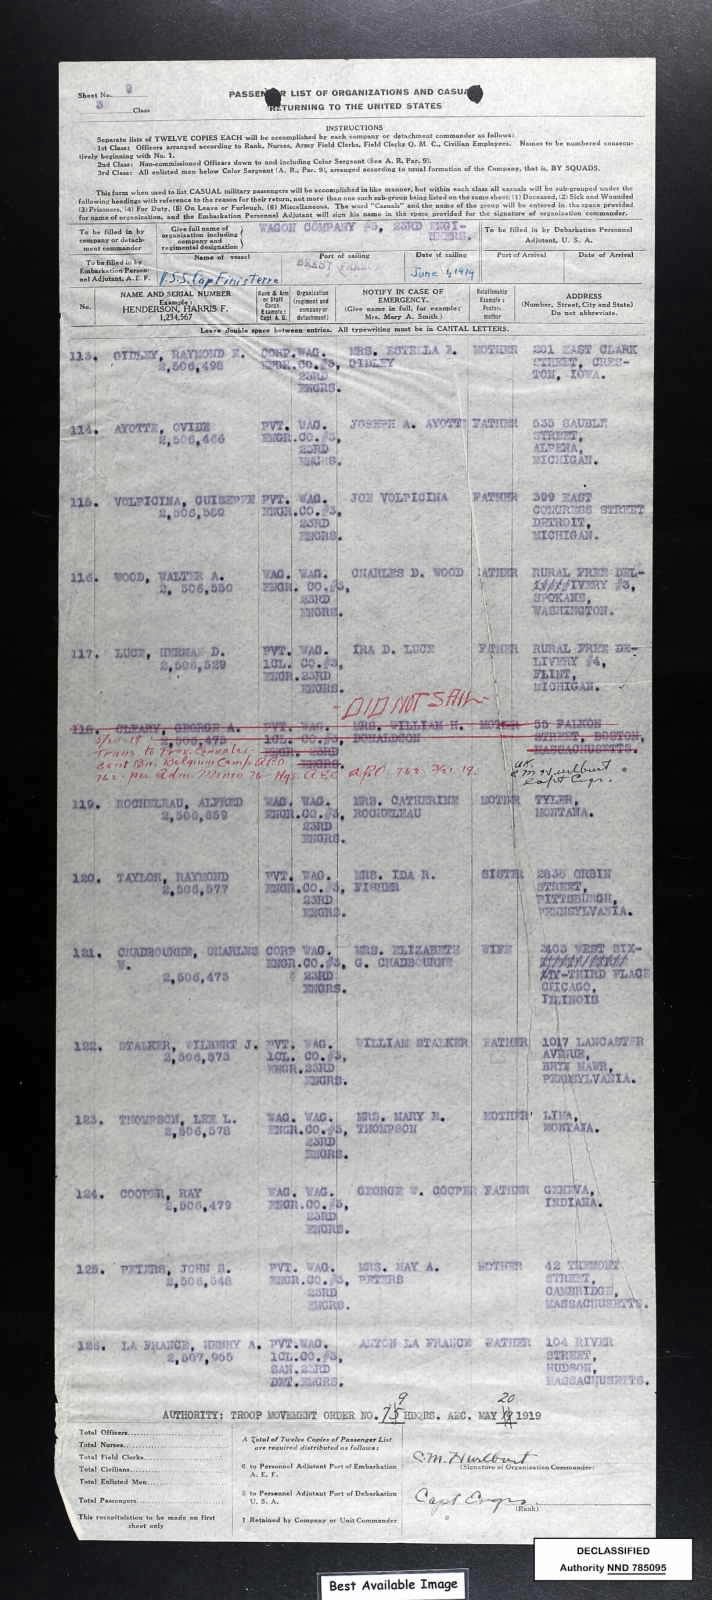 Sheet No. 9
3 Class
PASSENGER LIST OF ORGANIZATIONS AND CASUALS
RETURNING TO THE UNITED STATES
INSTRUCTIONS
Separate lists of TWELVE COPIES EACH will be accomplished by each company or detachment commander as follows:
1st Class: Officers arranged according to Rank, Nurses, Army Field Clerks, Field Clerks Q. M. C., Civilian Employees. Names to be numbered consecu-
tively beginning with No. 1.
2nd Class: Non-commissioned Officers down to and including Color Sergeant (See A. R. Par. 9).
3rd Class: All enlisted men below Color Sergeant (A. R., Par. 9), arranged according to usual formation of the Company, that is, BY SQUADS.
This form when used to list CASUAL military passengers will be accomplished in like manner, but within each class all casuals will be sub-grouped under the
following headings with reference to the reason for their return, not more than one such sub-group being listed on the same sheet: (1) Deceased, (2) Sick and Wounded
(3) Prisoners, (4) For Duty, (5) On Leave or Furlough, (6) Miscellaneous. The word "Casuals" and the name of the group will be entered in the space provided
for name of organization, and the Embarkation Personnel Adjutant will sign his name in the space provided for the signature of organization commander.
To be filled in by company or detachment commander
Give full name of organization including company and regimental designation
WAGON COMPANY #3, 23RD ENGI-
NEERS.
To be filled in by Debarkation Personnel Adjutant, U. S. A.
To be filled in by Embarkation Personnel Adjutant, A. E. F.
Name of vessel
U.S.S. Cap Finisterre
Port of sailing
BREST FRANCE
Date of sailing
June 4, 1919
Port of Arrival
Date of Arrival
No.
NAME AND SERIAL NUMBER
Example:
HENDERSON, HARRIS F.
1,234,567
Rank & Arm or Staff Corps. Example: Capt A. G.
Organization (regiment and company or detachment)
NOTIFY IN CASE OF EMERGENCY.
(Give name in full, for example: Mrs. Mary A. Smith)
Relationship Example: Father, mother
ADDRESS
(Number, Street, City and State)
Do not abbreviate.
Leave double space between entries. All typewriting must be in CAPITAL LETTERS.
113. GIDLEY, RAYMOND E. CORP. WAG. MRS. ESTELLA B. MOTHER 201 EAST CLARK
2,506,498 ENGR. CO.#3, GIDLEY STREET, CRES-
23RD TON, IOWA.
ENGRS.
114. AYOTTE, OVIDE PVT. WAG. JOSEPH A. AYOTTE FATHER 535 SAUBLE
2,506,466 ENGR. CO.#3, STREET,
23RD ALPENA,
ENGRS. MICHIGAN.
115. VOLPICINA, GUISEPPE PVT. WAG. JOE VOLPICINA FATHER 399 EAST
ENGR. CO.#3, CONGRESS STREET
23RD DETROIT,
ENGRS. MICHIGAN.
116. WOOD, WALTER A. WAG. WAG. CHARLES D. WOOD FATHER RURAL FREE DEL-
2,506,550 ENGR. CO.#3, IVERY #3,
23RD SPOKANE,
ENGRS. WASHINGTON.
117. LUCE, HERMAN D. PVT. WAG. IRA D. LUCE FATHER RURAL FREE DE-
2,506,529 1CL. CO.#3, LIVERY #4,
ENGR. 23RD FLINT,
ENGRS. MICHIGAN.
- DID NOT SAIL -
118. CLEARY, GEORGE A. PVT. WAG. MRS. WILLIAM H. MOTHER 55 FALKON
2,506,475 1CL. CO.#3, DONARDSON STREET, BOSTON,
ENGR. 23RD MASSACHUSETTS.
ENGRS.
Trans. to Prov. Camp
Belgium Camp A.P.O.
762 - per Adm. Memo 76 - Hqs. A.E.C. A.P.O. 762
OK
C M Hurlburt
Capt Engrs.
119. ROCHELEAU, ALFRED WAG. WAG. MRS. CATHERINE MOTHER TYLER,
2,506,859 ENGR. CO.#3, ROCHELEAU MONTANA.
23RD
ENGRS.
120. TAYLOR, RAYMOND PVT. WAG. MRS. IDA R. SISTER 2838 ORBIN
2,506,577 ENGR. CO.#3, FISHER STREET,
23RD PITTSBURGH,
ENGRS. PENNSYLVANIA.
121. CHADBOURNE, CHARLES CORP WAG. MRS. ELIZABETH WIFE 2403 WEST SIX-
W. ENGR. CO.#3, G. CHADBOURNE
2,506,473 23RD TY-THIRD PLACE
ENGRS. CHICAGO,
ILLINOIS
122. STALKER, WILBERT J. PVT. WAG. WILLIAM STALKER FATHER 1017 LANCASTER
2,506,573 1CL. CO.#3, AVENUE,
ENGR. 23RD BRYN MAWR,
ENGRS. PENNSYLVANIA.
123. THOMPSON, LEE L. WAG. WAG. MRS. MARY E. MOTHER LIMA,
2,506,578 ENGR. CO.#3, THOMPSON MONTANA.
23RD
ENGRS.
124. COOPER, RAY WAG. WAG. GEORGE W. COOPER FATHER GENEVA,
2,506,479 ENGR. CO.#3, INDIANA.
23RD
ENGRS.
125. PETERS, JOHN S. PVT. WAG. MRS. MAY A. MOTHER 42 TREMONT
2,506,548 ENGR. CO.#3, PETERS STREET,
23RD CAMBRIDGE,
ENGRS. MASSACHUSETTS.
126. LA FRANCE, HENRY A. PVT. WAG. ANTON LA FRANCE FATHER 104 RIVER
2,507,955 1CL. CO.#3, STREET,
SAN. 23RD HUDSON,
DET. ENGRS. MASSACHUSETTS.
9 20
AUTHORITY: TROOP MOVEMENT ORDER NO. 75 HDQRS. AEC. MAY 1919
Total Officers
Total Nurses
Total Field Clerks
Total Civilians
Total Enlisted Men
Total Passengers
This recapitulation to be made on first sheet only
A Total of Twelve Copies of Passenger List are required distributed as follows:
6 to Personnel Adjutant Port of Embarkation A. E. F.
5 to Personnel Adjutant Port of Debarkation U. S. A.
1 Retained by Company or Unit Commander
C.M. Hurlburt
(Signature of Organization Commander)
Capt Engrs.
(Rank)
DECLASSIFIED
Authority NND 785095
Best Available Image